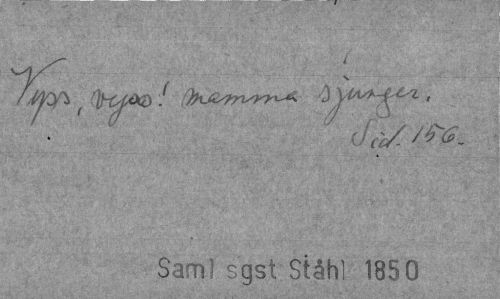 Vyss, vyss! mamma sjunger.
Sid. 156.
Saml sgst Ståhl 1850